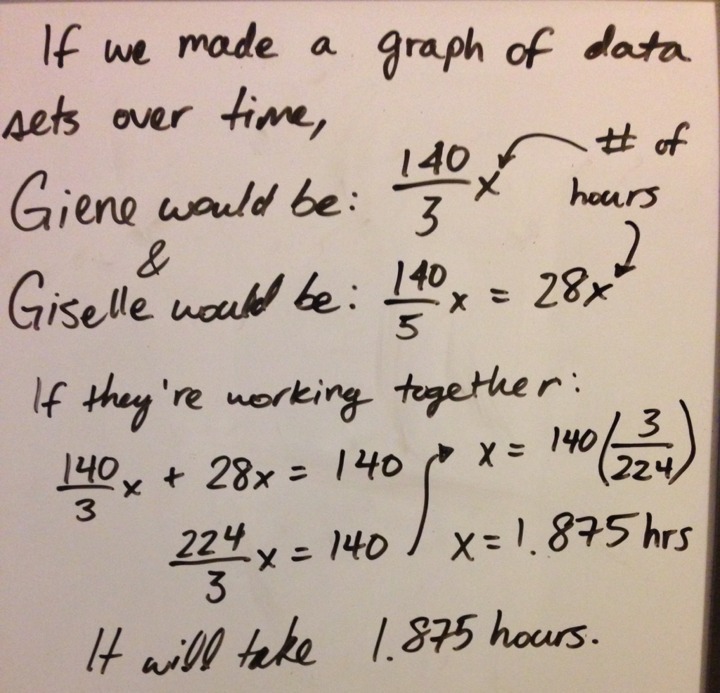 If we made a graph of data
sets over time,
Giene would be: 140/3 x
# of
hours
&
Giselle would be: 140/5 x = 28x
If they're working together:
140/3 x + 28x = 140
224/3 x = 140
x = 140(3/224)
x = 1.875 hrs
It will take 1.875 hours.